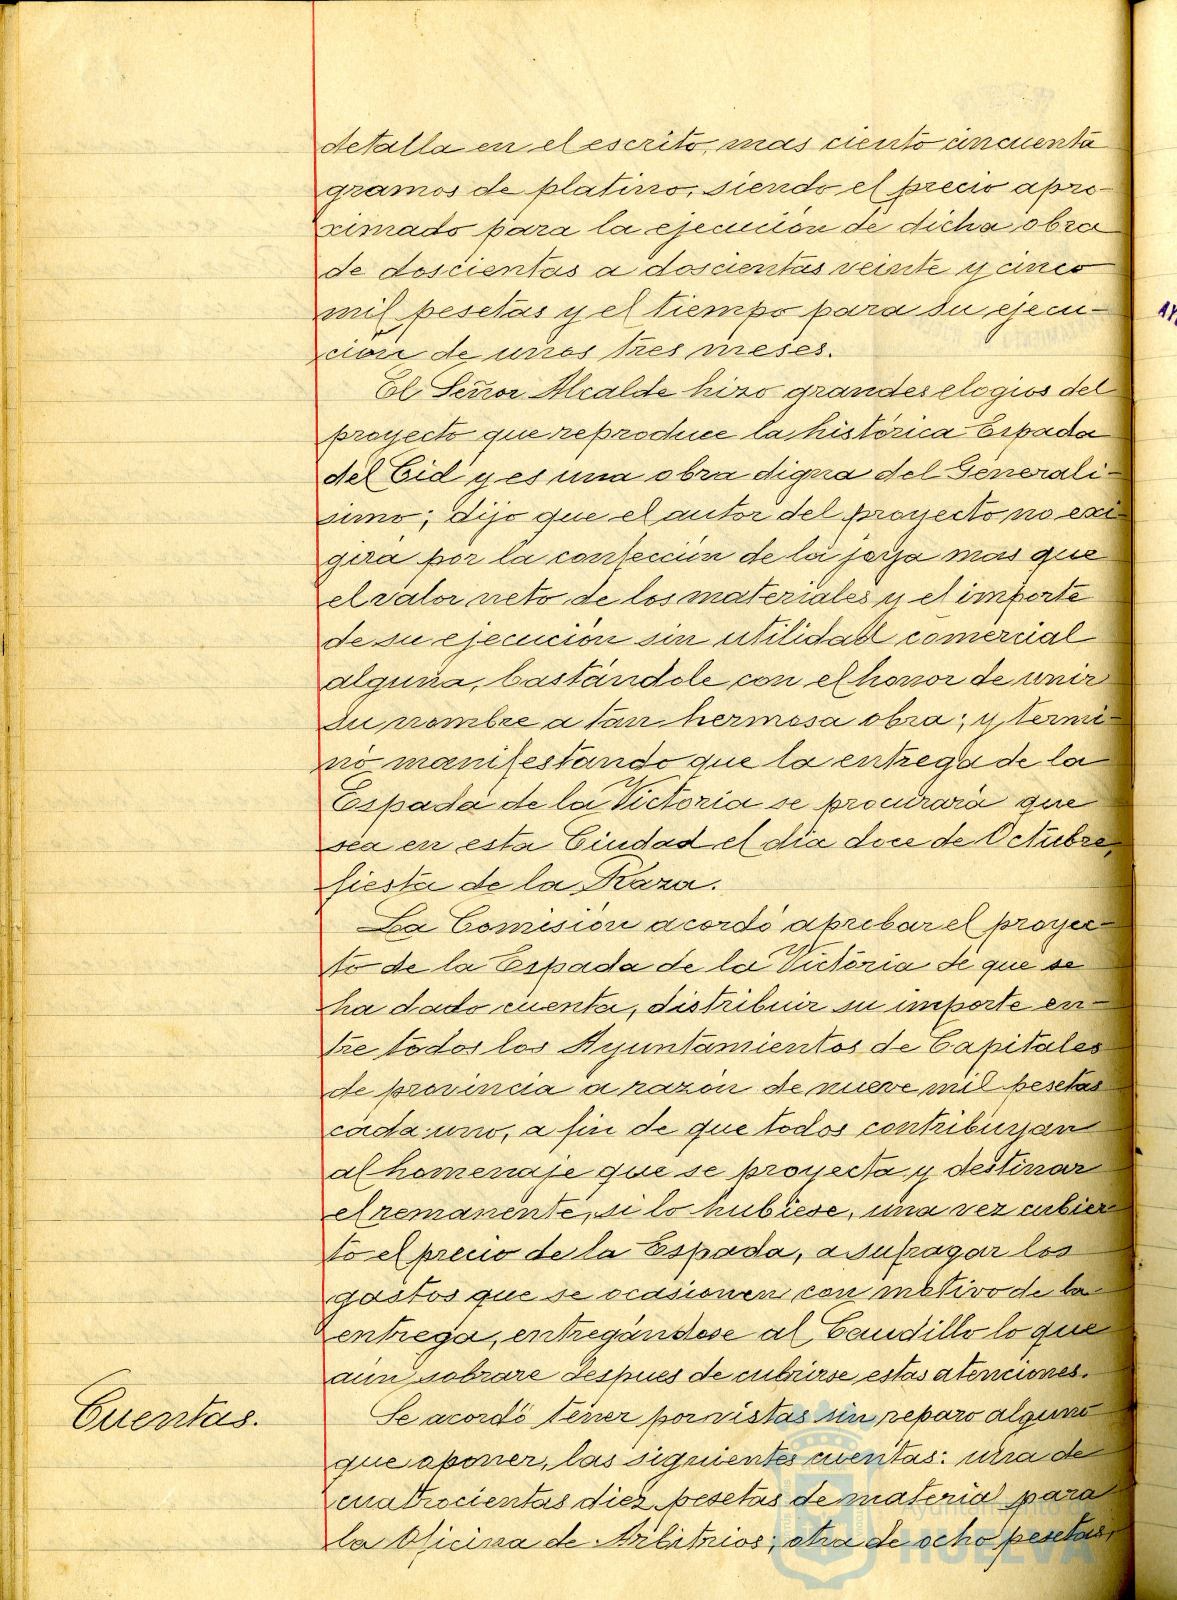 detalla en el escrito, mas ciento cincuenta
gramos de platino, siendo el precio apro-
ximado para la ejecución de dicha obra
de doscientas a doscientas veinte y cinco
mil pesetas y el tiempo para su ejecu-
ción de unos tres meses.
El Señor Alcalde hizo grandes elogios del
proyecto que reproduce la histórica Espada
del Cid y es una obra digna del Generalí-
simo; dijo que el autor del proyecto no exi-
girá por la confección de la joya mas que
el valor neto de los materiales y el importe
de su ejecución sin utilidad comercial
alguna, bastándole con el honor de unir
su nombre a tan hermosa obra; y termi-
nó manifestando que la entrega de la
Espada de la Victoria se procurará que
sea en esta Ciudad el día doce de Octubre,
fiesta de la Raza.
La Comisión acordó aprobar el proyec-
to de la Espada de la Victoria de que se
ha dado cuenta, distribuir su importe en-
tre todos los Ayuntamientos de Capitales
de provincia a razón de nueve mil pesetas
cada uno, a fin de que todos contribuyan
al homenaje que se proyecta y destinar
el remanente, si lo hubiese, una vez cubier-
to el precio de la Espada, a sufragar los
gastos que se ocasionen con motivo de la
entrega, entregándose al Caudillo lo que
aún sobrare despues de cubrirse estas atenciones.
Cuentas.
Se acordó tener por vistas sin reparo alguno
que oponer, las siguientes cuentas: una de
cuatrocientas diez pesetas de material para
la Oficina de Arbitrios; otra de ocho pesetas,
Ayuntamiento
HUELVA